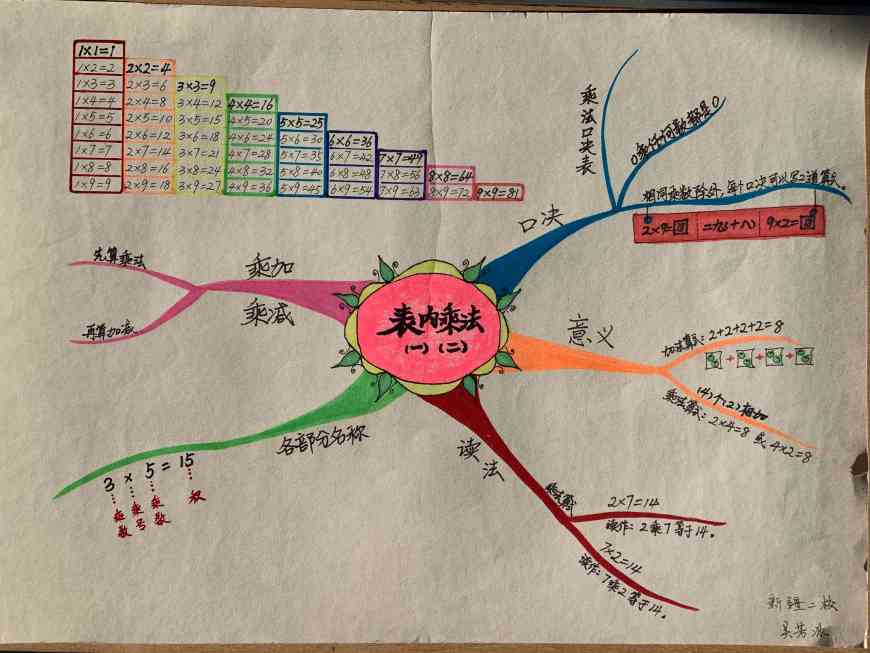 1×1=1
1×2=2 2×2=4
1×3=3 2×3=6 3×3=9
1×4=4 2×4=8 3×4=12 4×4=16
1×5=5 2×5=10 3×5=15 4×5=20 5×5=25
1×6=6 2×6=12 3×6=18 4×6=24 5×6=30 6×6=36
1×7=7 2×7=14 3×7=21 4×7=28 5×7=35 6×7=42 7×7=49
1×8=8 2×8=16 3×8=24 4×8=32 5×8=40 6×8=48 7×8=56 8×8=64
1×9=9 2×9=18 3×9=27 4×9=36 5×9=45 6×9=54 7×9=63 8×9=72 9×9=81
表内乘法
(一)(二)
口决
乘法口决表
0乘任何数都是0
相同乘数除外,每个口决可以写2道算式。
2×9= 二九十八 9×2=
意义
加法算式:2+2+2+2=8
+ + +
(4)个(2)相加
乘法算式:2×4=8 或 4×2=8
读法
乘法算式
2×7=14
读作:2乘7等于14。
7×2=14
读作:7乘2等于14。
各部分名称
3 × 5 = 15
乘数 乘号 乘数 积
乘加
乘减
先算乘法
再算加减
新疆二校